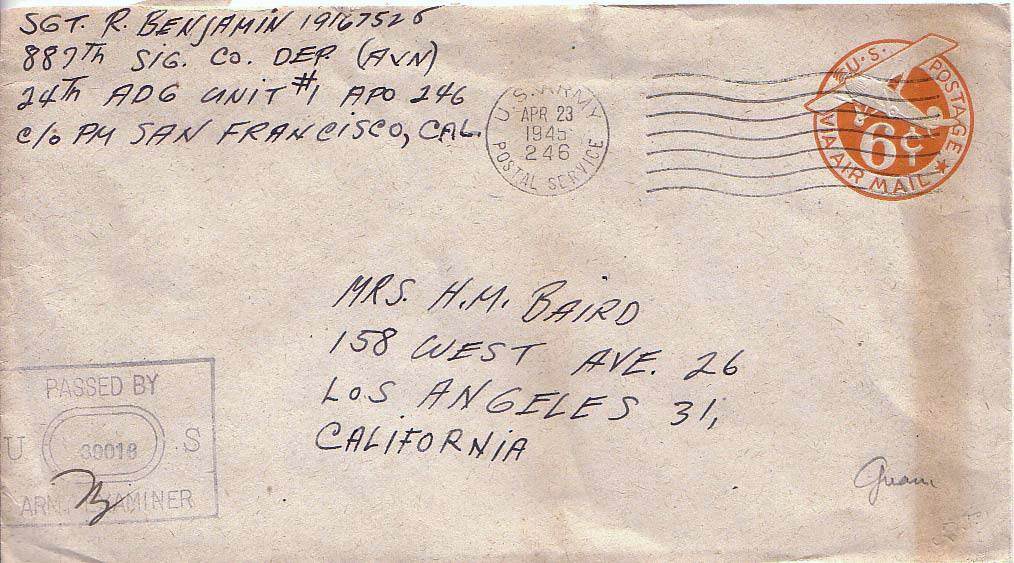 SGT. R. BENJAMIN 19167526
887TH SIG. CO. DEP. (AVN)
24TH ADG UNIT #1 APO 246
c/o PM SAN FRANCISCO, CAL.
U.S. ARMY
APR 23
1945
246
POSTAL SERVICE
U.S. POSTAGE
6¢
VIA AIR MAIL
MRS. H.M. BAIRD
158 WEST AVE. 26
LOS ANGELES 31,
CALIFORNIA
PASSED BY
U 30018 S
ARMY EXAMINER
Guam